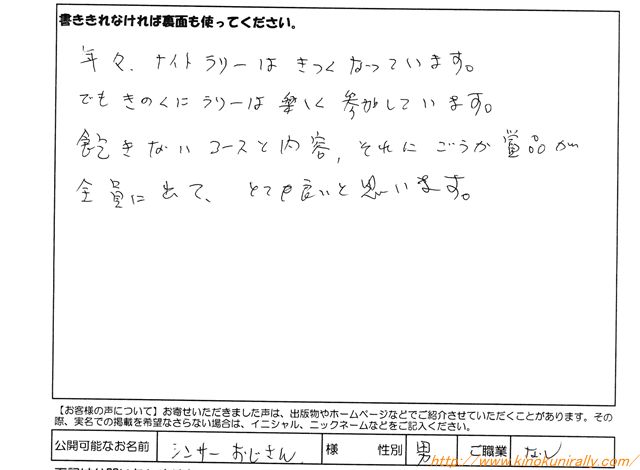 書ききれなければ裏面も使ってください。
年々、ナイトラリーは きつくなっています。
でも きのくにラリーは 楽しく 参加しています。
飽きない コースと内容、それに ごうか 賞品が
全員に出て、とても良いと思います。
【お客様の声について】お寄せいただきました声は、出版物やホームページなどでご紹介させていただくことがあります。その
際、実名での掲載を希望なさらない場合は、イニシャル、ニックネームなどをご記入ください。
公開可能なお名前 シンサーおじさん 様 性別 男 ご職業 なし
http://www.kinokunirally.com/